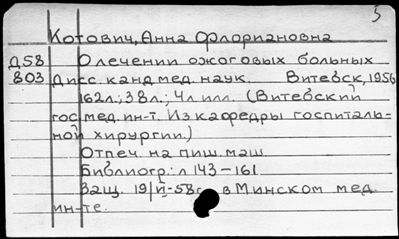 5
Котович, Анна Флориановна
Д58 О лечении ожоговых больных
803 Дисс. канд. мед. наук. Витебск, 1956
162л.; 38л.; 4л илл. (Витебский
гос. мед. ин-т. Из кафедры госпиталь-
ной хирургии.)
Отпеч. на пиш. маш.
Библиогр.: л 143-161
Защ. 19/VI-58г. в Минском мед.
ин-те.